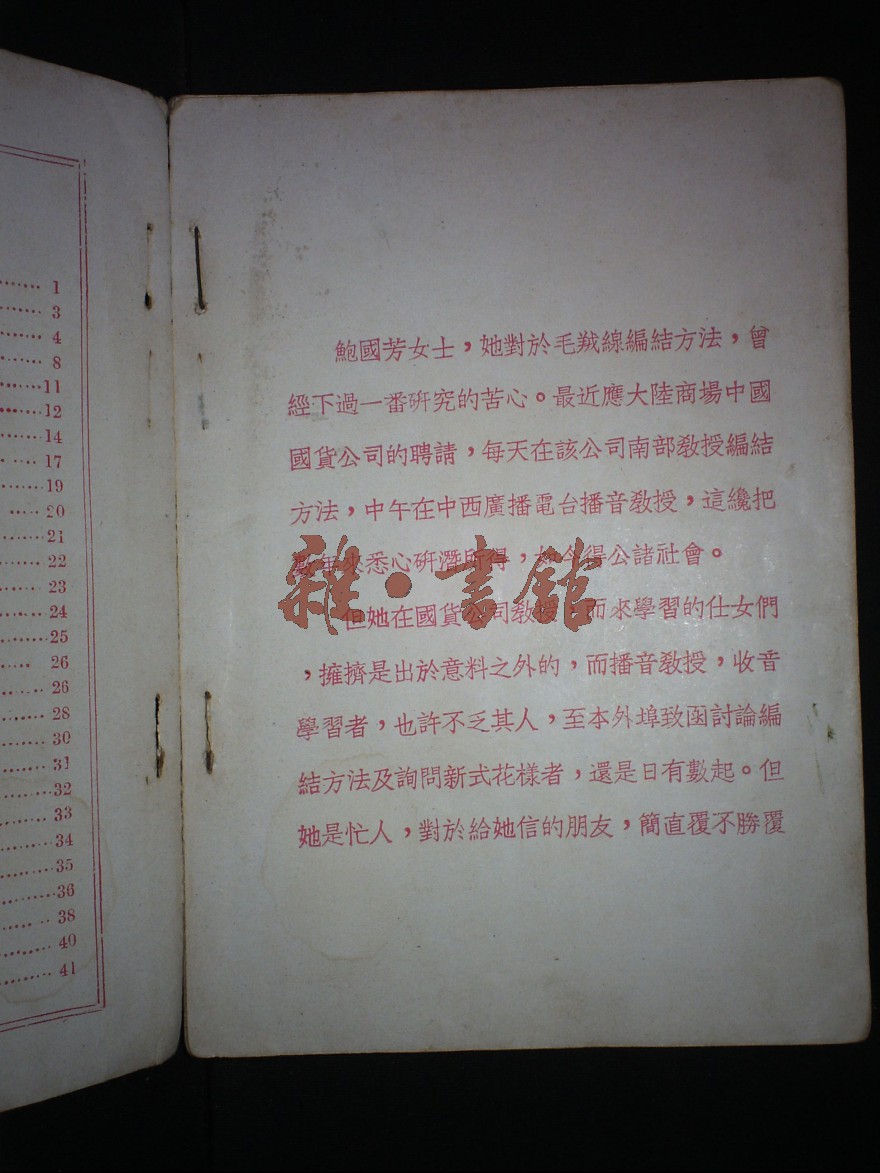 1
3
4
8
11
12
14
17
19
20
21
22
23
24
25
26
26
28
30
31
32
33
34
35
36
38
40
41
鮑國芳女士，她對於毛羢線編結方法，曾
經下過一番硏究的苦心。最近應大陸商場中國
國貨公司的聘請，每天在該公司南部敎授編結
方法，中午在中西廣播電台播音敎授，這纔把
數年來悉心硏潛所得，如今得公諸社會。
但她在國貨公司敎授，而來學習的仕女們
，擁擠是出於意料之外的，而播音敎授，收音
學習者，也許不乏其人，至本外埠致函討論編
結方法及詢問新式花樣者，還是日有數起。但
她是忙人，對於給她信的朋友，簡直覆不勝覆
雜·書館